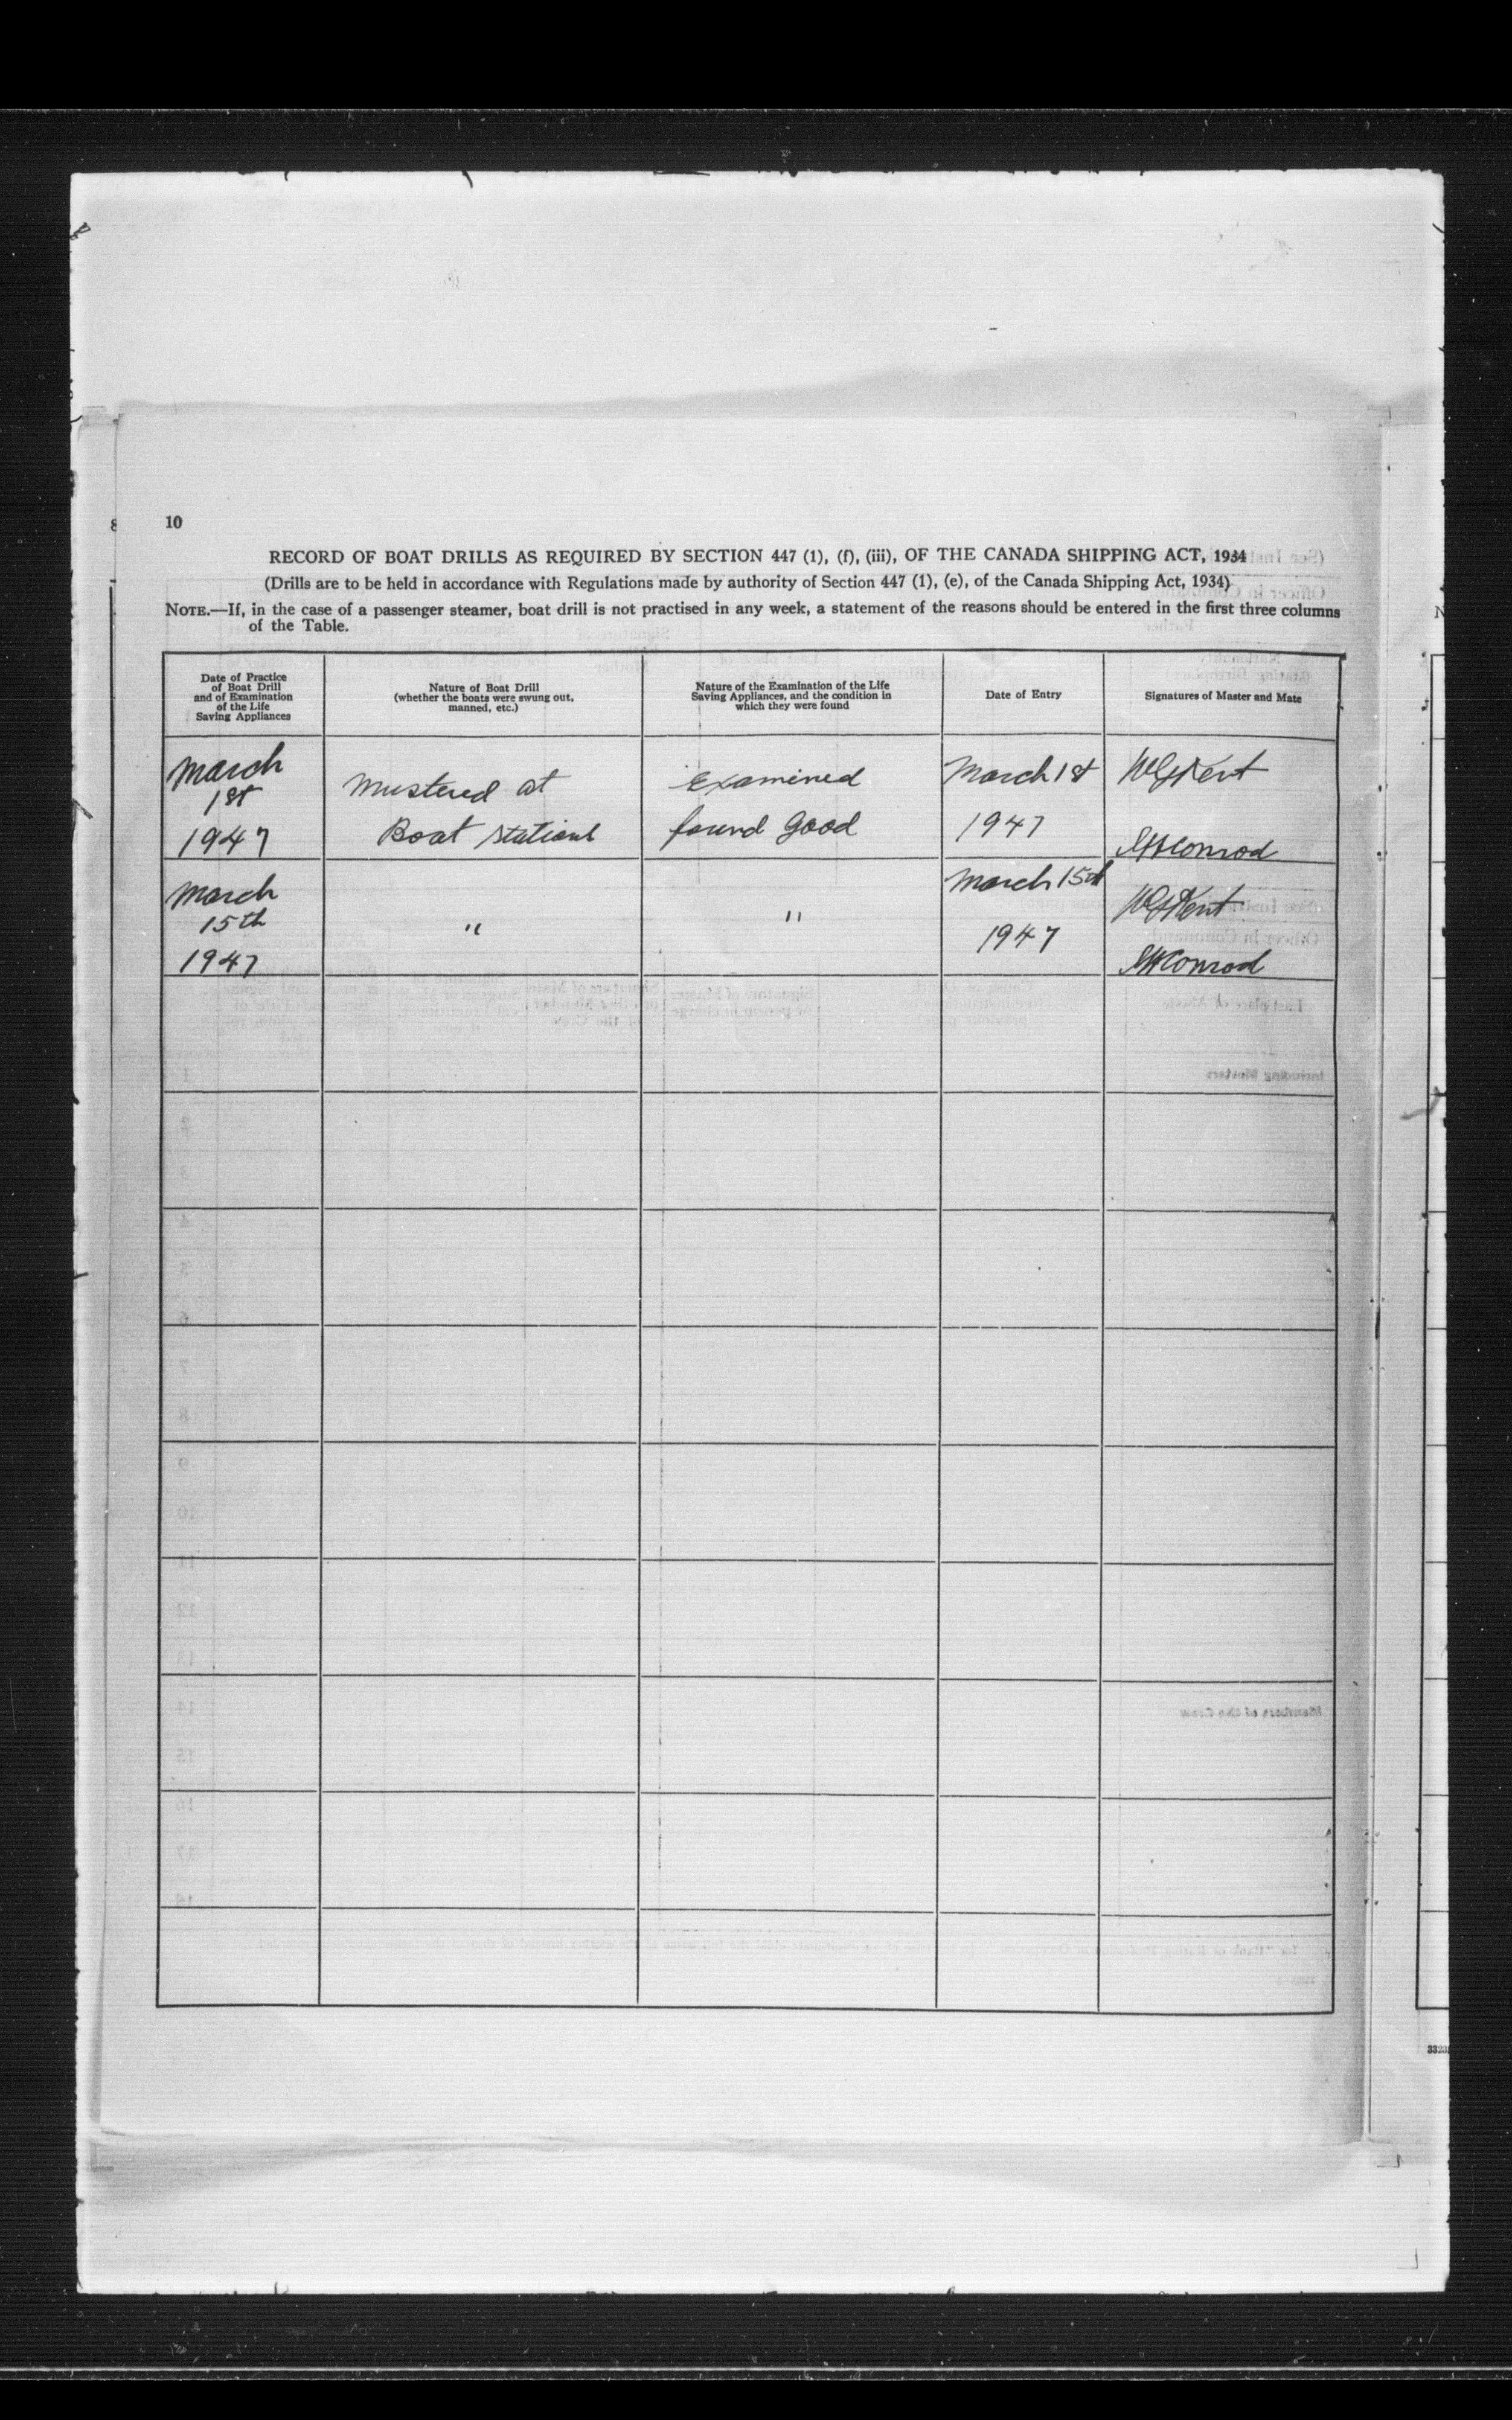 10
RECORD OF BOAT DRILLS AS REQUIRED BY SECTION 447 (1), (f), (iii), OF THE CANADA SHIPPING ACT, 1934
(Drills are to be held in accordance with Regulations made by authority of Section 447 (1), (e), of the Canada Shipping Act, 1934)
NOTE.—If, in the case of a passenger steamer, boat drill is not practised in any week, a statement of the reasons should be entered in the first three columns
of the Table.
Date of Practice
of Boat Drill
and of Examination
of the Life
Saving Appliances
Nature of Boat Drill
(whether the boats were swung out,
manned, etc.)
Nature of the Examination of the Life
Saving Appliances, and the condition in
which they were found
Date of Entry
Signatures of Master and Mate
March
1st
1947
Mustered at
Boat Stations
Examined
found Good
March 1st
1947
Kent
Conrod
March
15th
1947
"
"
March 15th
1947
Kent
Conrod